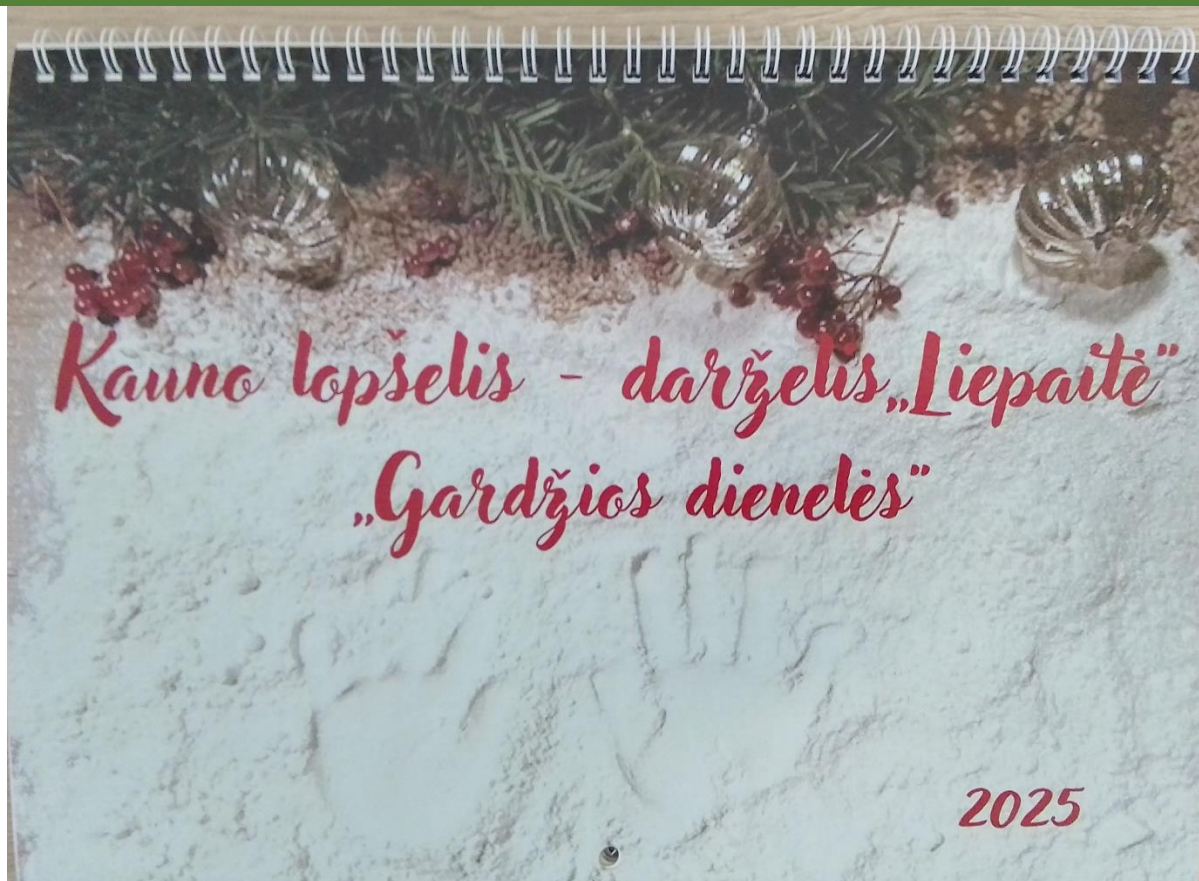 Kauno lopšelis - darželis „Liepaitė“
„Gardžios dienelės“
2025